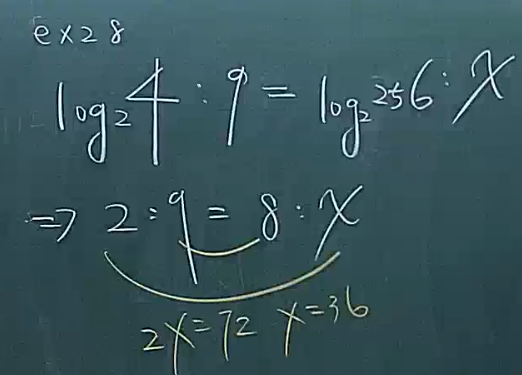 ex28
log₂4 : 9 = log₂256 : x
⇒ 2 : 9 = 8 : x
2x=72 x=36